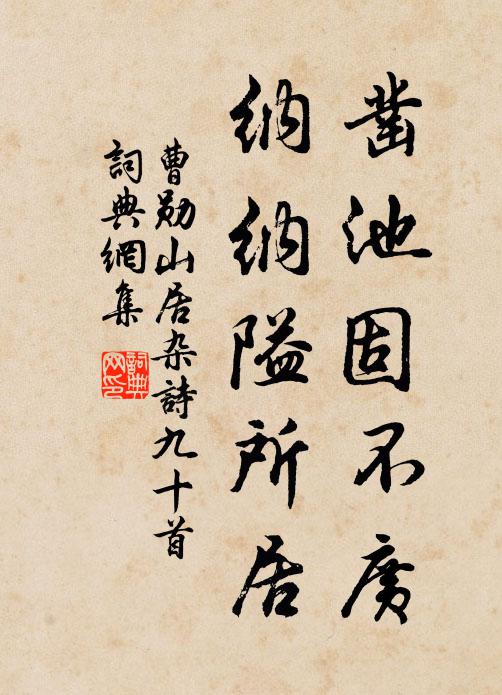 凿池固不广
纳纳隘所居
曹勋山居杂詩九十首
詞典網集
詞典
网印